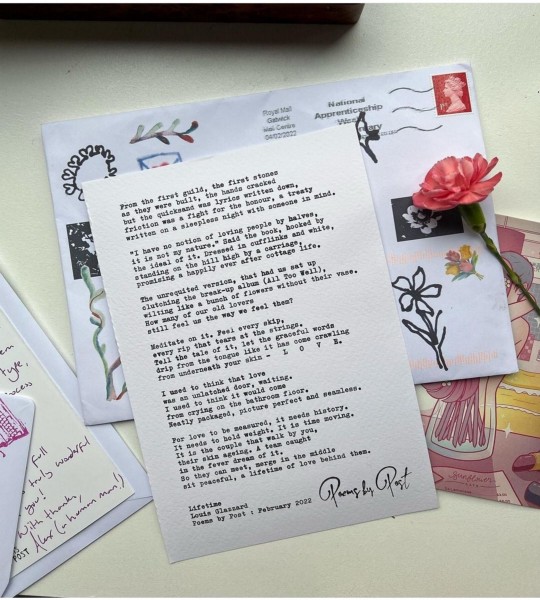 Royal Mail
Gatwick
Mail Centre
04/02/2022
National
Apprenticeship
1st
From the first guild, the first stones
as they were built, the hands cracked
but the quicksand was lyrics written down,
friction was a fight for the honour, a treaty
written on a sleepless night with someone in mind.
"I have no notion of loving people by halves,
it is not my nature." Said the book, hooked by
the ideal of it. Dressed in cufflinks and white,
standing on the hill high by a carriage,
promising a happily ever after cottage life.
The unrequited version, that had us sat up
clutching the break-up album (All Too Well),
wilting like a bunch of flowers without their vase.
How many of our old lovers
still feel us the way we feel them?
Meditate on it. Feel every skip,
every rip that tears at the strings.
Tell the tale of it, let the graceful words
drip from the tongue like it has come crawling
from underneath your skin - L O V E.
I used to think that love
was an unlatched door, waiting.
I used to think it would come
from crying on the bathroom floor.
Neatly packaged, picture perfect and seamless.
For love to be measured, it needs history.
It needs to hold weight. It is time moving.
It is the couple that walk by you,
their skin ageing. A team caught
in the fever dream of it.
So they can meet, merge in the middle
sit peaceful, a lifetime of love behind them.
Lifetime
Louis Glazzard
Poems by Post : February 2022
Poems by Post
full
truly wonderful
you!
With thanks,
Alex (a human man!)
POST
Sunflower